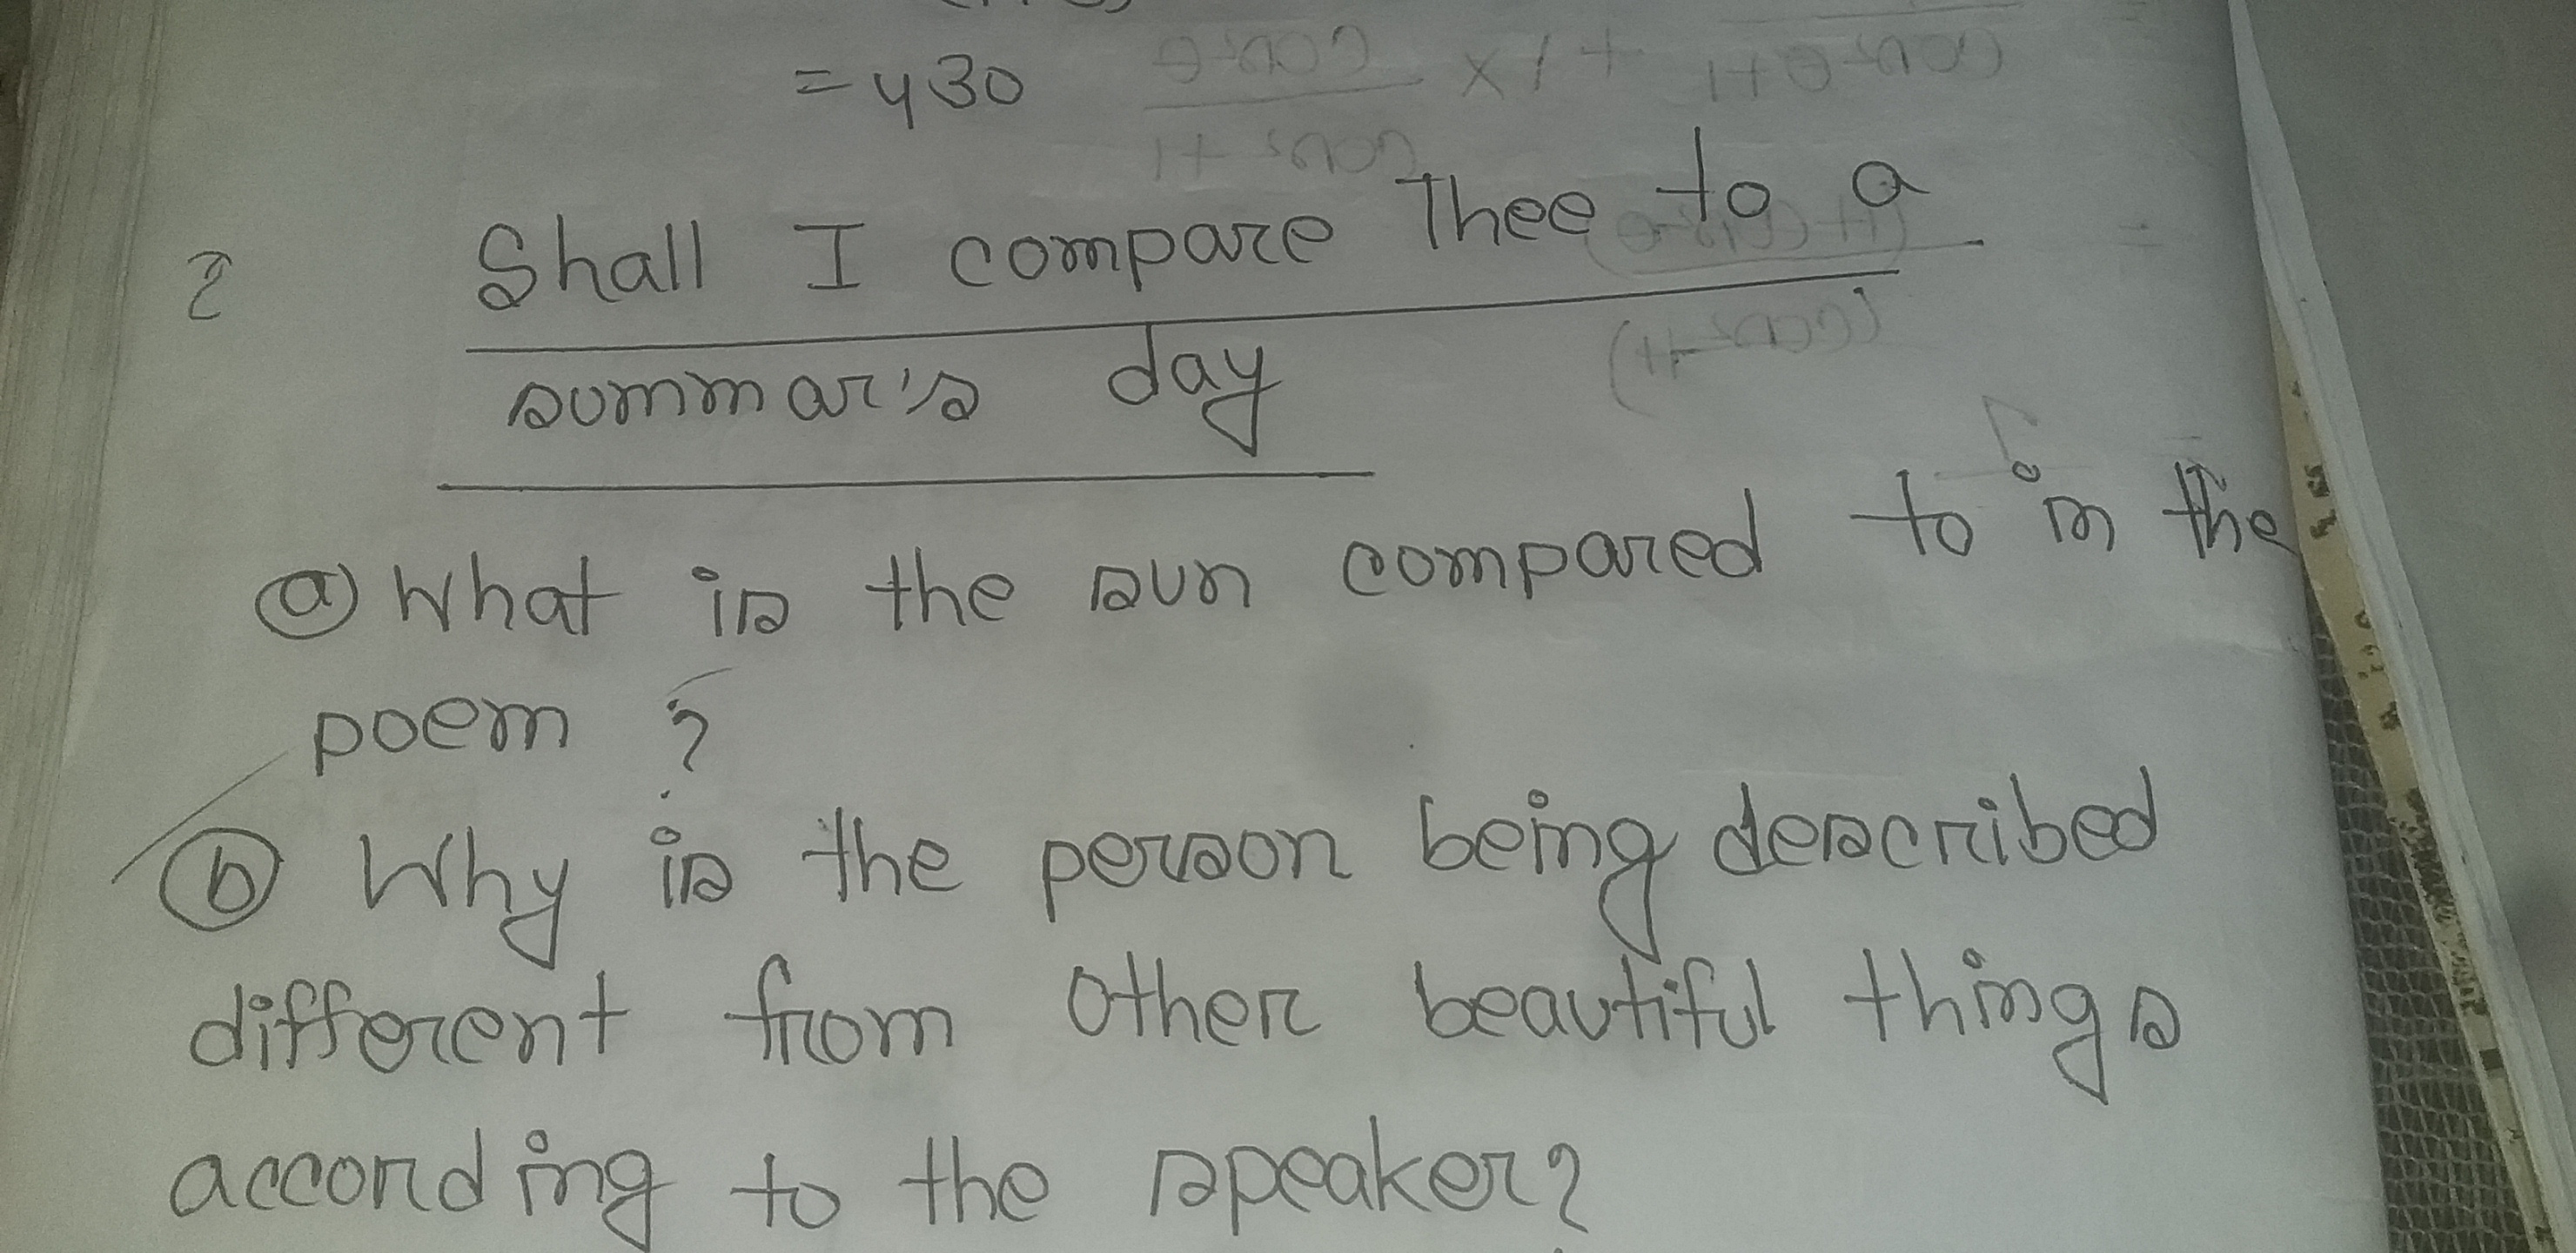 = 430
2 Shall I compare Thee to a
summar's day
(a) What is the sun compared to in the
poem ?
(b) Why is the person being described
different from other beautiful things
according to the speaker?